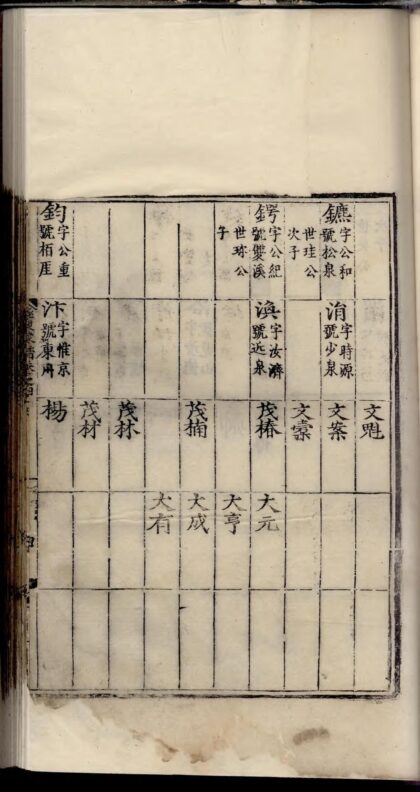 字公和
號松泉
世珪公
次子
鍔
字公紀
號雙溪
世珎公
子
鈞
字公重
號栢厓
字時源
號少泉
字汝濟
號近泉
汴
字惟京
號東
文魁
文案
文
茂椿
茂楠
茂林
茂材
楊
大元
大亨
大成
大有